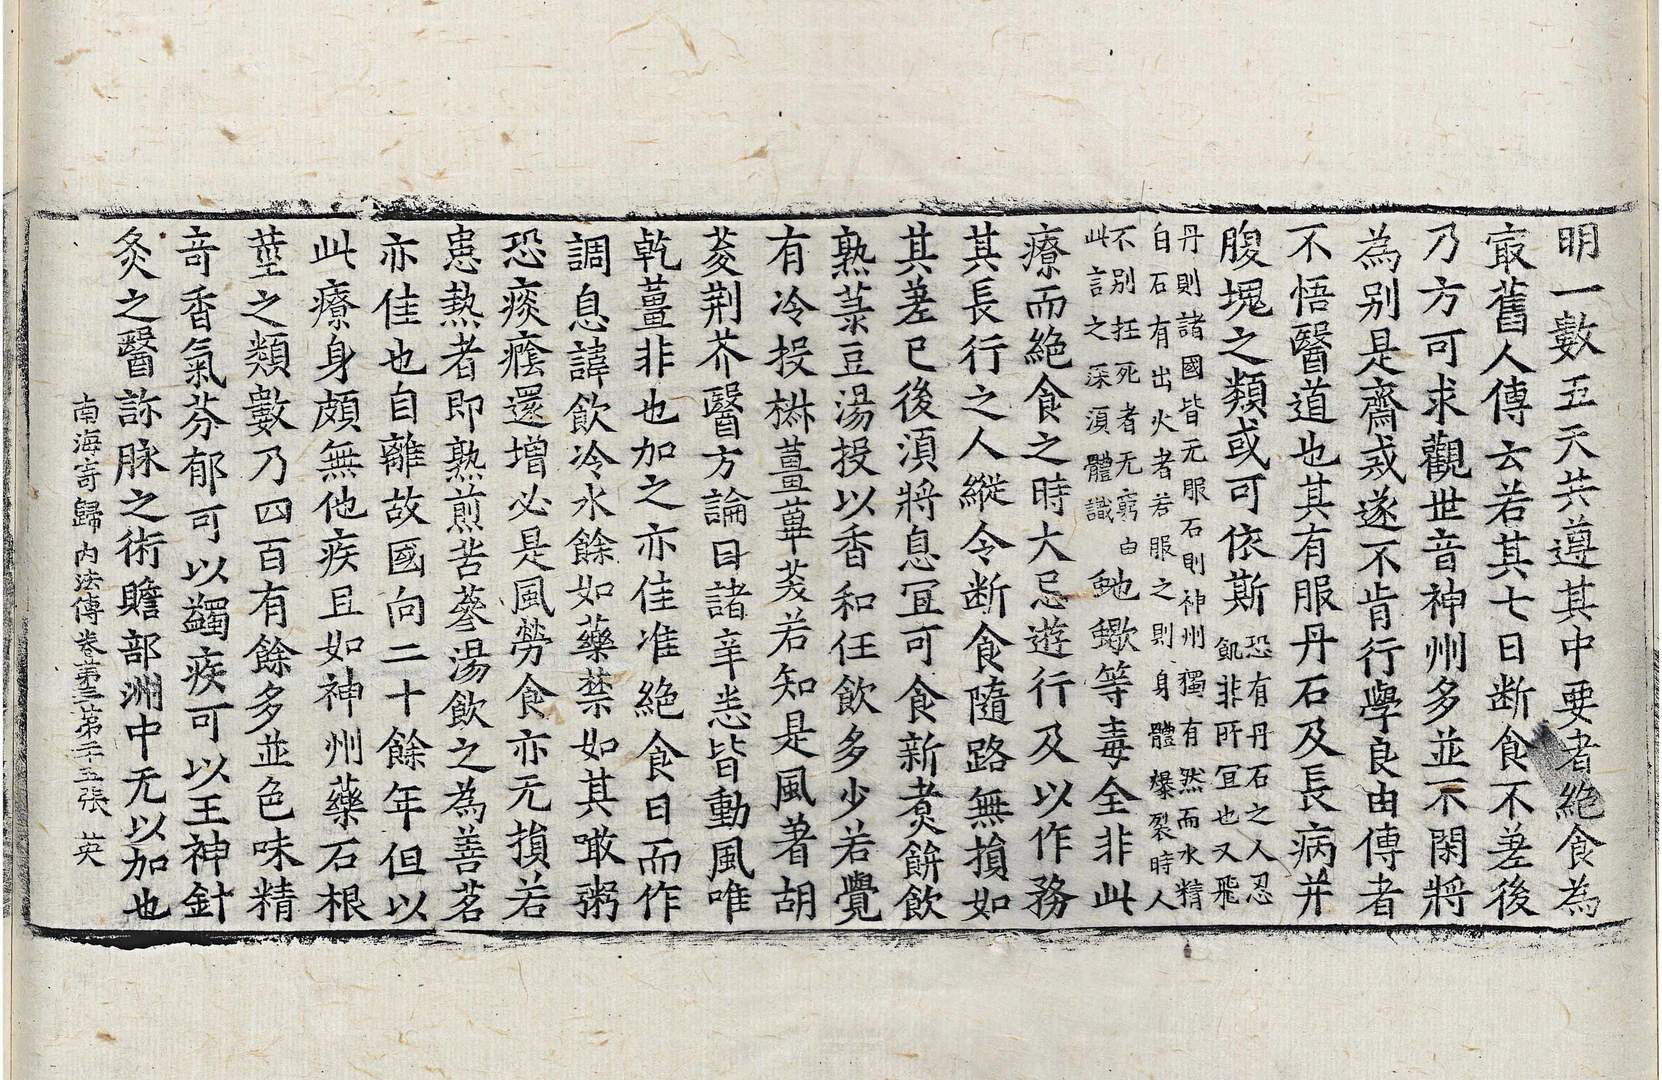 明一數五天共遵其中要者絶食為
冣舊人傳云若其七日断食不差後
乃方可求觀世音神州多並不閑將
為别是齋戒遂不肯行學良由傳者
不悟醫道也其有服丹石及長病并
腹塊之類或可依斯恐有丹石之人忍
飢非所冝也又飛
丹則諸國皆无服石則神州獨有然而水精
白石有出火者若服之則身體爆裂時人
不别抂死者无窮由
此言之深湏體識虵蠍等毒全非此
療而絶食之時大忌遊行及以作務
其長行之人縱令断食隨路無損如
其差已後湏將息冝可食新煑餅飲
熟菉豆湯投以香和任飲多少若覺
有冷投椒薑蓽茇若知是風著胡
荾荆芥醫方論曰諸辛悉皆動風唯
乾薑非也加之亦佳准絶食日而作
調息諱飲冷水餘如藥禁如其噉粥
恐痰癊還增必是風勞食亦无損若
患熱者即熟煎苦蔘湯飲之為善茗
亦佳也自離故國向二十餘年但以
此療身頗無他疾且如神州藥石根
莖之類數乃四百有餘多並色味精
奇香氣芬郁可以蠲疾可以王神針
灸之醫診脉之術贍部洲中无以加也
南海寄歸内法傳卷第三 第二十五張 英